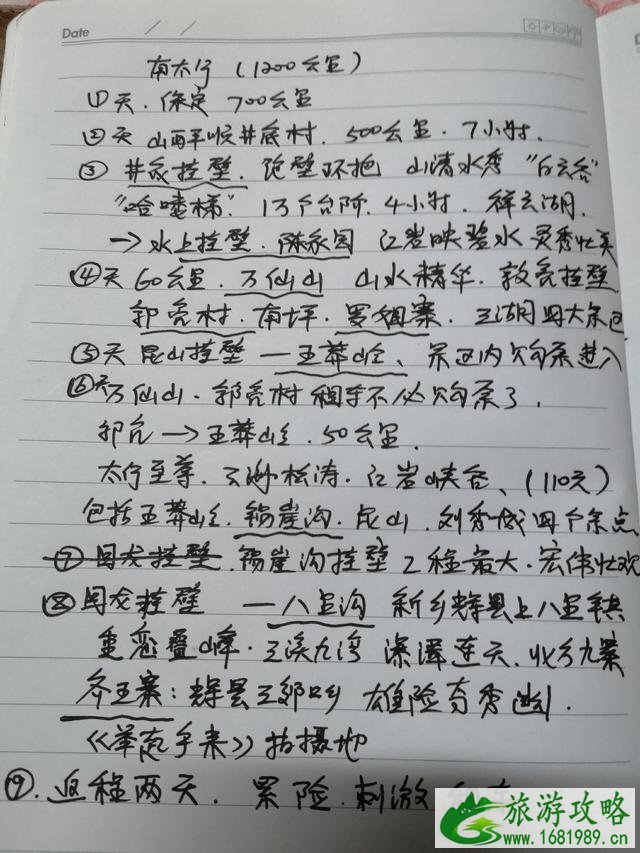 Date
南太行（1200公里）
①天、保定 700公里
②天 山西平顺井底村、500公里、7小时、
③ 井底挂壁、绝壁环抱 山清水秀“白云谷”
“哈喽梯”、1万个台阶、4小时、祥云湖、
→水上挂壁、陈家园 红岩映碧水 灵秀壮美
④天 60公里、万仙山 山水精华、郭亮挂壁
郭亮村、南坪、罗姐寨、三湖四大景区
⑤天 昆山挂壁 — 王莽岭、景区内 购票进入
⑥天万仙山、郭亮村 租车不必购票了，
郭亮→王莽岭、50公里、
太行至尊、云海松涛、红岩峡谷、（110元）
包括王莽岭、锡崖沟、昆山、刘秀城四个景点
锡崖沟挂壁 工程最大、宏伟壮观
⑧ 回龙挂壁 — 八里沟 新乡辉县上八里镇
重峦叠峰、三溪九湾 瀑潭连天、 九寨
齐王寨：辉县三郊口乡 雄险奇秀幽
《举起手来》拍摄地
⑨、返程两天、累 险、刺激
旅游攻略
www.1681989.cn